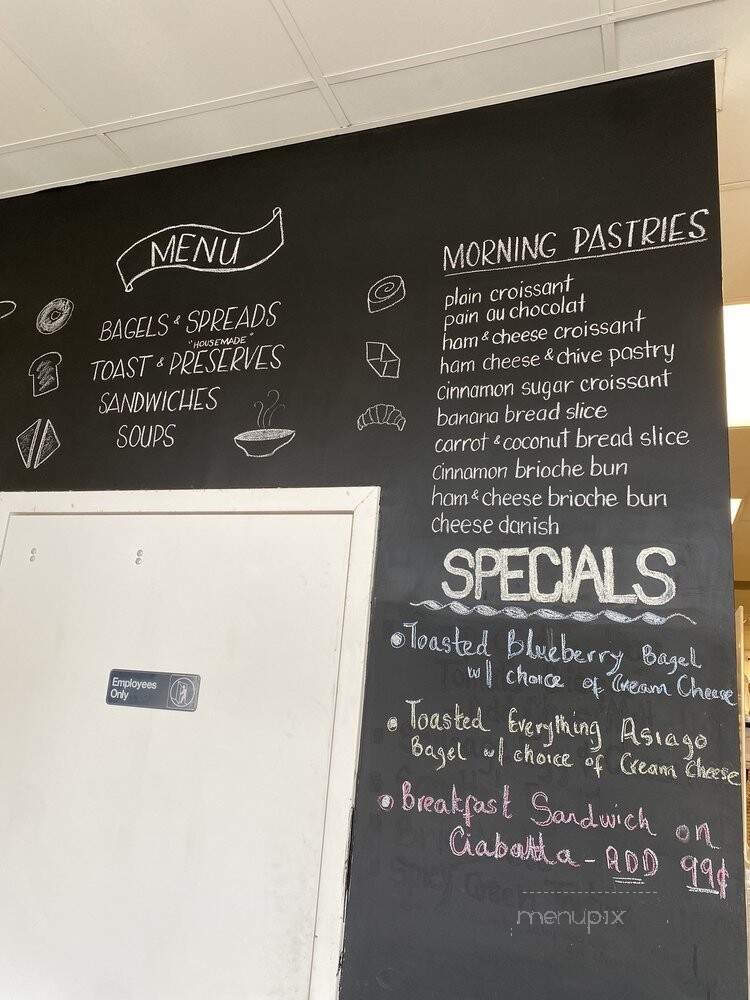 MENU
BAGELS & SPREADS
"HOUSEMADE"
TOAST & PRESERVES
SANDWICHES
SOUPS
MORNING PASTRIES
plain croissant
pain au chocolat
ham & cheese croissant
ham cheese & chive pastry
cinnamon sugar croissant
banana bread slice
carrot & coconut bread slice
cinnamon brioche bun
ham & cheese brioche bun
cheese danish
SPECIALS
Toasted Blueberry Bagel
w/ choice of Cream Cheese
Toasted Everything Asiago
Bagel w/ choice of Cream Cheese
Breakfast Sandwich on
Ciabatta - ADD 99¢
Employees
Only
menupix